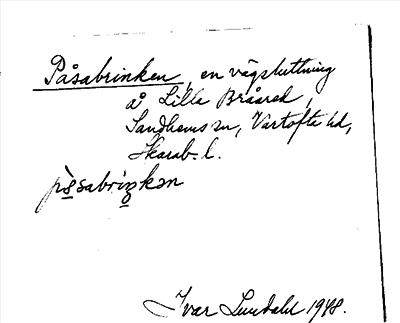 Påsabrinken, en vägsluttning
å Lilla Bråared,
Sandhems sn, Vartofta hd,
Skarab. l.
påsabriŋkən
Ivar Lundahl 1948.